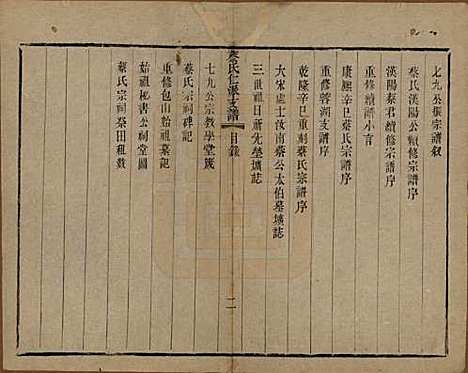 七九公振宗譜叙
蔡氏漢陽公續修宗譜序
漢陽秦君續修宗譜序
重修續譜小言
康熙辛巳蔡氏宗譜序
重修蓉湖支譜序
乾隆辛巳重刺蔡氏宗譜序
大宋處士汝南蔡公太伯墓壙誌
三世祖日新先塋壙誌
蔡氏仁派支譜
目錄
二
七九公宗教學堂箴
蔡氏宗祠碑記
重修包山始祖墓記
始祖秘書公祠堂圖
蔡氏宗祠祭田租數